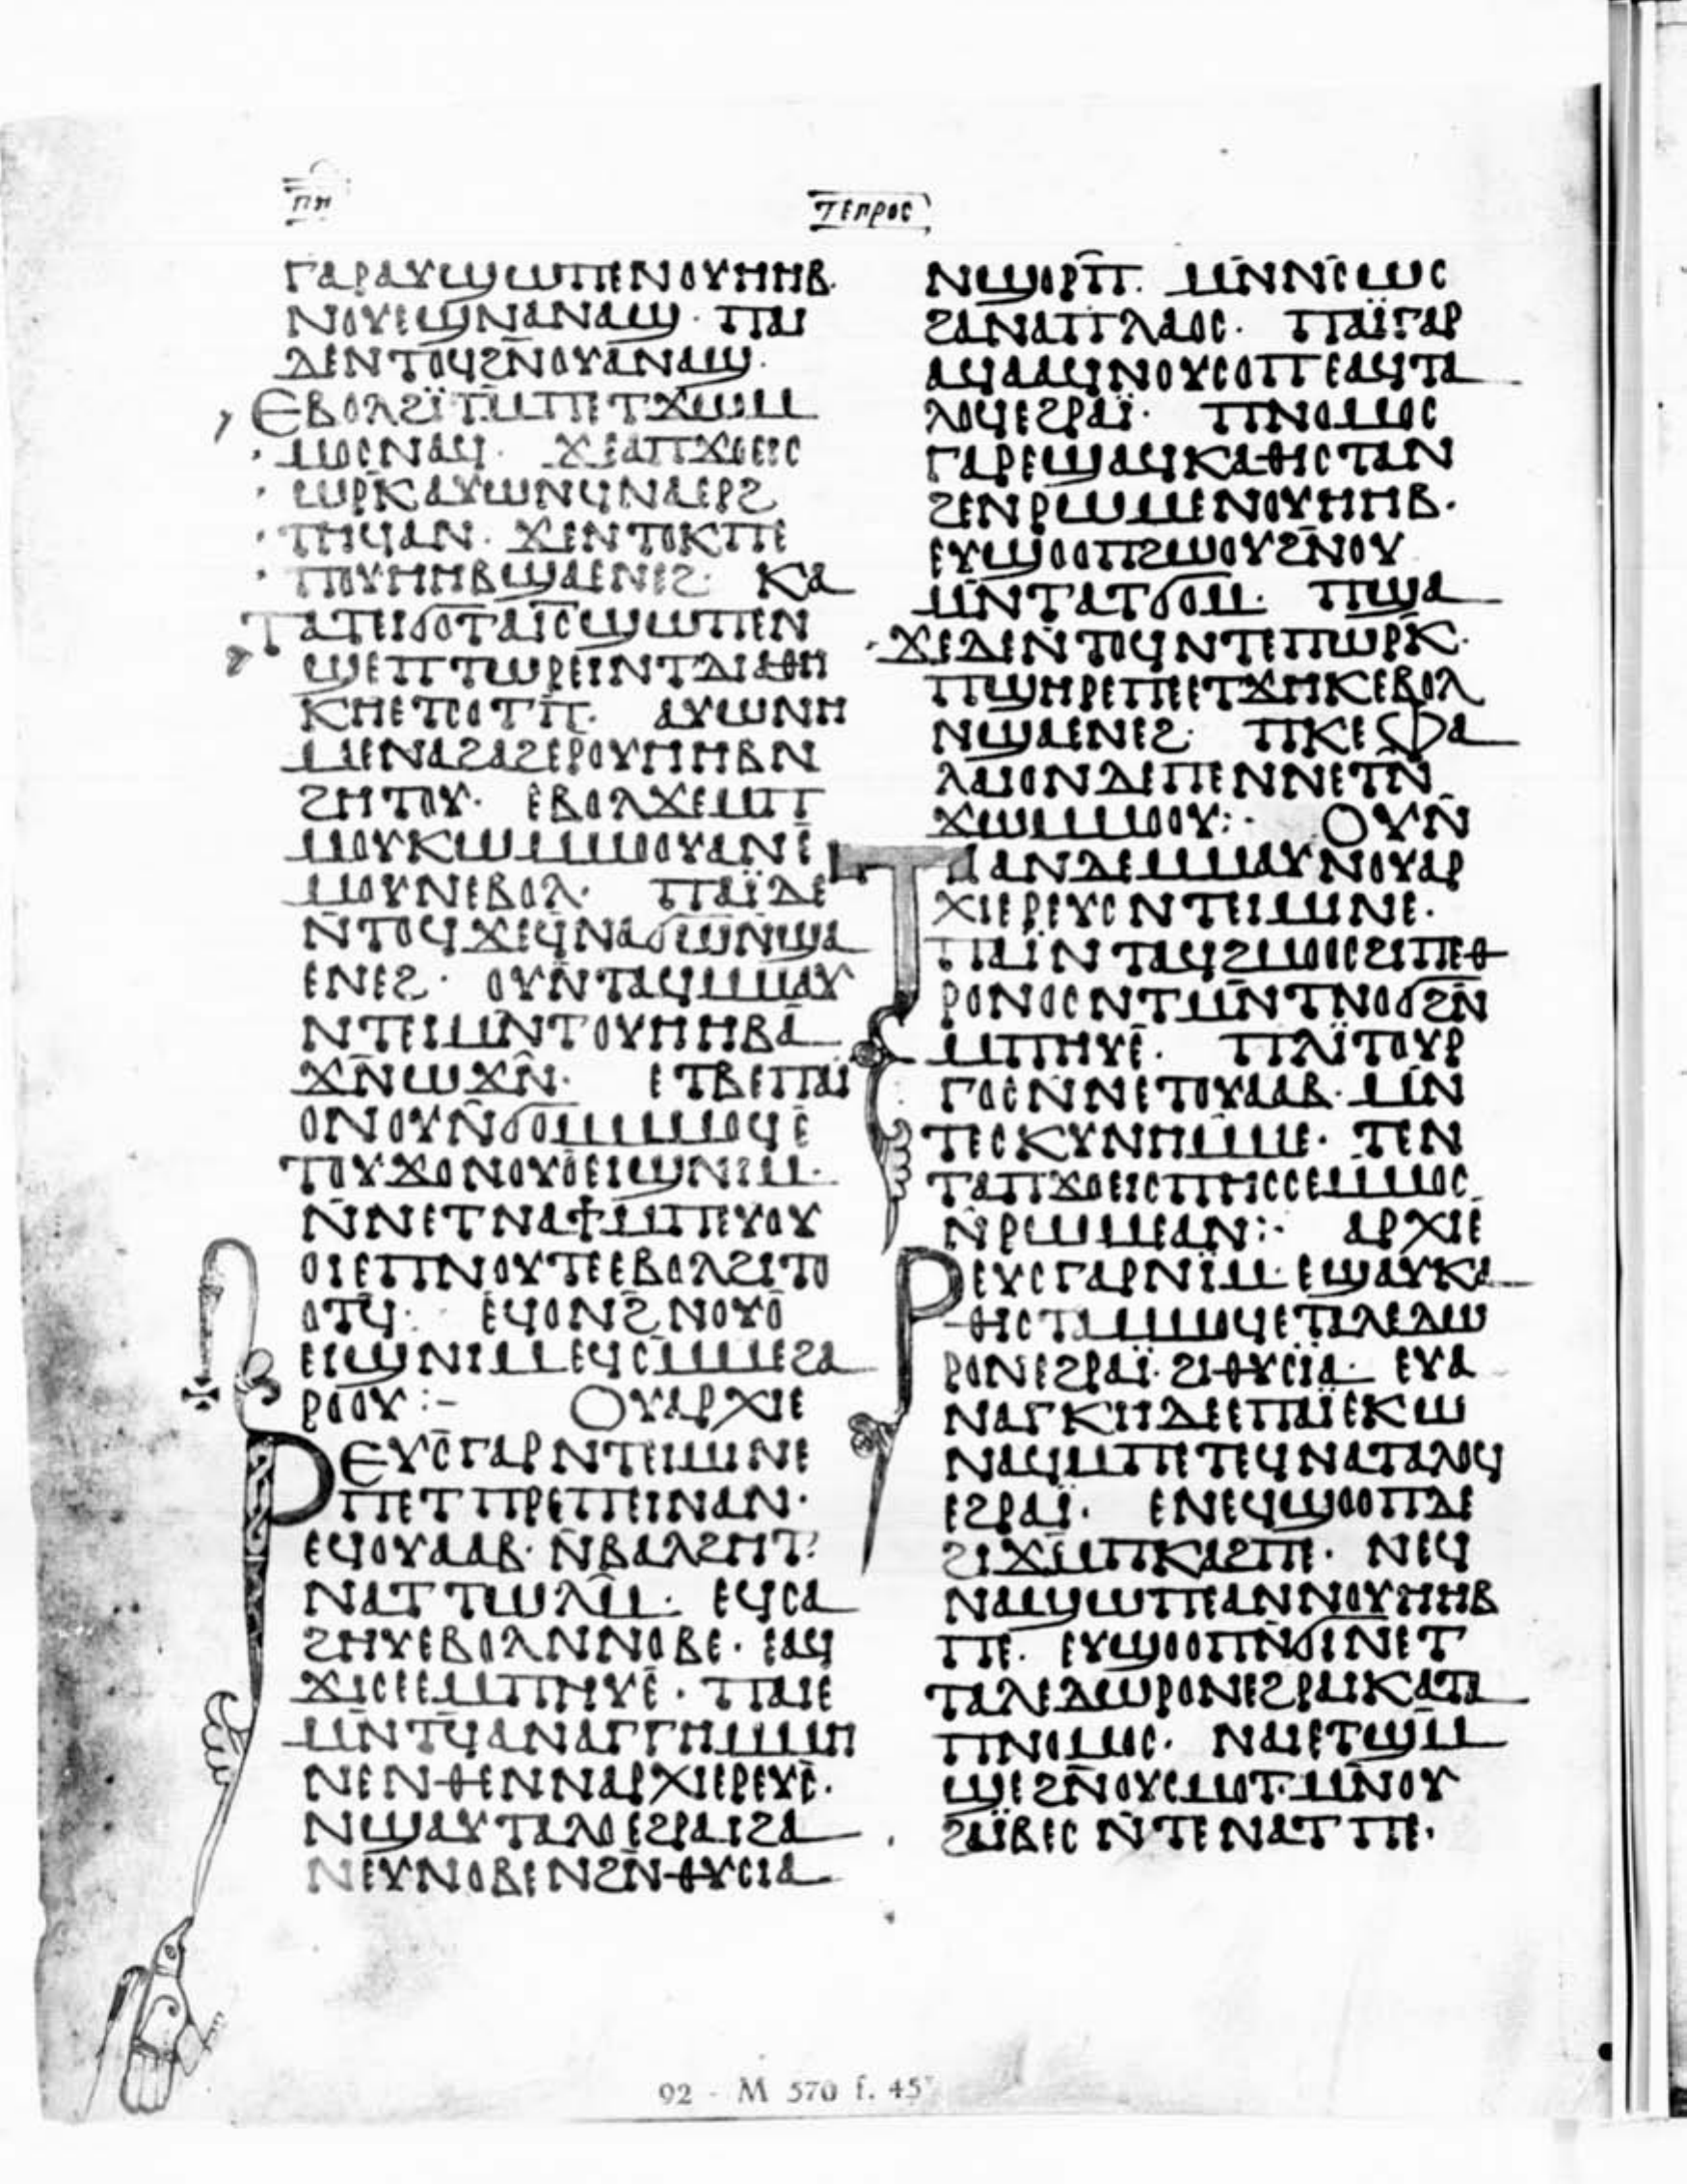 ⲡⲏ
ⲧⲉⲡⲣⲟⲥ
ⲅⲁⲣⲁⲩϣⲱⲡⲉⲛⲟⲩⲏⲏⲃ·
ⲛⲟⲩⲉϣⲛⲁⲛⲁϣ· ⲡⲁⲓ
ⲇⲉⲛⲧⲟϥϩⲛ̄ⲟⲩⲁⲛⲁϣ·
Ⲉⲃⲟⲗϩⲓ̈ⲧⲙ̄ⲡⲉⲧϫⲱⲙ
ⲙⲟⲥⲛⲁϥ· ϫⲉⲁⲡϫⲟⲉⲓⲥ
ⲱⲣⲕ̄ⲁⲩⲱⲛϥⲛⲁⲉⲣϩ
ⲧⲏϥⲁⲛ· ϫⲉⲛⲧⲟⲕⲡⲉ
ⲡⲟⲩⲏⲏⲃϣⲁⲉⲛⲉϩ· ⲕⲁ
ⲧⲁⲧⲉⲓϭⲟⲧⲁⲓ̈ⲥϣⲱⲡⲉⲛ
ϣⲉⲡⲧⲱⲣⲉⲓⲛⲧⲇⲓⲁⲑⲏ
ⲕⲏⲉⲧⲥⲟⲧⲡ̄· ⲁⲩⲱⲛⲏ
ⲙⲉⲛⲁϩⲁϩⲉⲣⲟⲩⲏⲏⲃⲛ
ϩⲏⲧⲟⲩ· ⲉⲃⲟⲗϫⲉⲙⲡ
ⲙⲟⲩⲕⲱⲙⲙⲟⲟⲩⲁⲛⲉ̄
ⲙⲟⲩⲛⲉⲃⲟⲗ· ⲡⲁⲓ̈ⲇⲉ
ⲛ̄ⲧⲟϥϫⲉϥⲛⲁϭⲱⲛ̄ϣⲁ
ⲉⲛⲉϩ· ⲟⲩⲛ̄ⲧⲁϥⲙⲙⲁⲩ
ⲛⲧⲉⲓⲙⲛ̄ⲧⲟⲩⲏⲏⲃⲁ̄
ϫⲛ̄ⲱϫⲛ̄· ⲉⲧⲃⲉⲡⲁⲓ̈
ⲟⲛⲟⲩⲛ̄ϭⲟⲙⲙⲙⲟϥⲉ̄
ⲧⲟⲩϫⲟⲛⲟⲩⲟ̄ⲉⲓϣⲛⲓⲙ·
ⲛ̄ⲛⲉⲧⲛⲁϯⲙ̄ⲡⲉⲩⲟⲩ
ⲟⲓⲉⲡⲛⲟⲩⲧⲉⲉⲃⲟⲗϩⲓⲧⲟ
ⲟⲧϥ̄· ⲉϥⲟⲛϩ̄ⲛⲟⲩⲟ̄
ⲉⲓϣⲛⲓⲙⲉϥⲥⲙⲙⲉϩⲁ
ⲣⲟⲟⲩ:– Ⲟⲩⲁⲣⲭⲓⲉ
ⲣⲉⲩⲥ̄ⲅⲁⲣⲛⲧⲉⲓⲙⲓⲛⲉ
ⲡⲉⲧⲡⲣⲉⲡⲉⲓⲛⲁⲛ·
ⲉϥⲟⲩⲁⲁⲃ· ⲛ̄ⲃⲁⲗϩⲏⲧ·
ⲛⲁⲧⲧⲱⲗⲙ̄· ⲉϥⲥⲁ
ϩⲏⲩⲉⲃⲟⲗⲛⲛⲟⲃⲉ· ⲉⲁϥ
ϫⲓⲥⲉⲉⲙⲡⲏⲩⲉ̄· ⲡⲁⲓⲉ
ⲙⲛ̄ⲧϥ̄ⲁⲛⲁⲅⲅⲏⲙⲙⲏ
ⲛⲉⲛⲑⲉⲛⲛⲁⲣⲭⲓⲉⲣⲉⲩⲥ̄·
ⲛϣⲁⲩⲧⲁⲗⲟⲉϩⲣⲁⲓϩⲁ
ⲛⲉⲩⲛⲟⲃⲉⲛϩⲛ̄ⲑⲩⲥⲓⲁ
ⲛϣⲟⲣⲡ̄· ⲙⲛ̄ⲛⲥ̄ⲱⲥ
ϩⲁⲛⲁⲡⲗⲁⲟⲥ· ⲡⲁⲓ̈ⲅⲁⲣ
ⲁϥⲁⲁϥⲛⲟⲩⲥⲟⲡⲉⲁϥⲧⲁ
ⲗⲟϥⲉϩⲣⲁⲓ̈· ⲡⲛⲟⲙⲟⲥ
ⲅⲁⲣⲉϣⲁϥⲕⲁⲑⲓⲥⲧⲁⲛ
ϩⲉⲛⲣⲱⲙⲉⲛⲟⲩⲏⲏⲃ·
ⲉⲩϣⲟⲟⲡϩⲱⲟⲩϩⲛ̄ⲟⲩ
ⲙⲛ̄ⲧⲁⲧϭⲟⲙ· ⲡϣⲁ
ϫⲉⲇⲉⲛ̄ⲧⲟϥⲛⲧⲉⲡⲱⲣⲕ̄·
ⲡϣⲏⲣⲉⲡⲉⲉⲧϫⲏⲕⲉⲃⲟⲗ
ⲛϣⲁⲉⲛⲉϩ· ⲡⲕⲉⲫⲁ
ⲗⲁⲓⲟⲛⲇⲉⲡⲉⲛⲛⲉⲧⲛ̄
ϫⲱⲙⲙⲟⲟⲩ:· Ⲟⲩⲛ̄
ⲧⲁⲛⲇⲉⲙⲙⲁⲩⲛⲟⲩⲁⲣ
ⲭⲓⲉⲣⲉⲩⲥⲛⲧⲉⲓⲙⲓⲛⲉ·
ⲡⲁⲓ̈ⲛⲧⲁϥϩⲙⲟⲟⲥϩⲓⲡⲉⲑ
ⲣⲟⲛⲟⲥⲛⲧⲙⲛ̄ⲧⲛⲟϭϩⲛ̄
ⲙⲡⲏⲩⲉ̄· ⲡⲗⲓ̈ⲧⲟⲩⲣ
ⲅⲟⲥⲛ̄ⲛⲉⲧⲟⲩⲁⲁⲃ· ⲙⲛ̄
ⲧⲉⲥⲕⲩⲛⲏⲙ̄ⲙⲉ· ⲧⲉⲛ
ⲧⲁⲡϫⲟⲉⲓⲥⲡⲏⲥⲥⲉⲙⲙⲟⲥ
ⲛ̄ⲣⲱⲙⲉⲁⲛ:· ⲁⲣⲭⲓⲉ
ⲣⲉⲩⲥⲅⲁⲣⲛⲓⲙ· ⲉϣⲁⲩⲕⲁ
ⲑⲓⲥⲧⲁⲙⲙⲟϥⲉⲧⲁⲗⲉⲇⲱ
ⲣⲟⲛⲉϩⲣⲁⲓ̈· ϩⲓⲑⲩⲥⲓ̈ⲁ· ⲉⲩⲁ
ⲛⲁⲅⲕⲏⲇⲉⲉⲡⲁⲓ̈ⲉⲕⲱ
ⲛⲁϥⲙⲡⲉⲧⲉϥⲛⲁⲧⲁⲗⲟϥ
ⲉϩⲣⲁⲓ̈· ⲉⲛⲉϥϣⲟⲟⲡⲇⲉ
ϩⲓϫⲙ̄ⲡⲕⲁϩⲡⲉ· ⲛⲉϥ
ⲛⲁϣⲱⲡⲉⲁⲛⲛⲟⲩⲏⲏⲃ
ⲡⲉ· ⲉⲩϣⲟⲟⲡⲛ̄ϭⲓⲛⲉⲧ
ⲧⲁⲗⲉⲇⲱⲣⲟⲛⲉϩⲣⲁⲓⲕⲁⲧⲁ
ⲡⲛⲟⲙⲟⲥ· ⲛⲁⲓⲉⲧϣⲙ̄
ϣⲉϩⲛ̄ⲟⲩⲥⲙⲟⲧ· ⲙⲛ̄ⲟⲩ
ϩⲁⲓ̈ⲃⲉⲥⲛ̄ⲧⲉⲛⲁⲧⲡⲉ·
92 - M 570 f. 45ᵛ